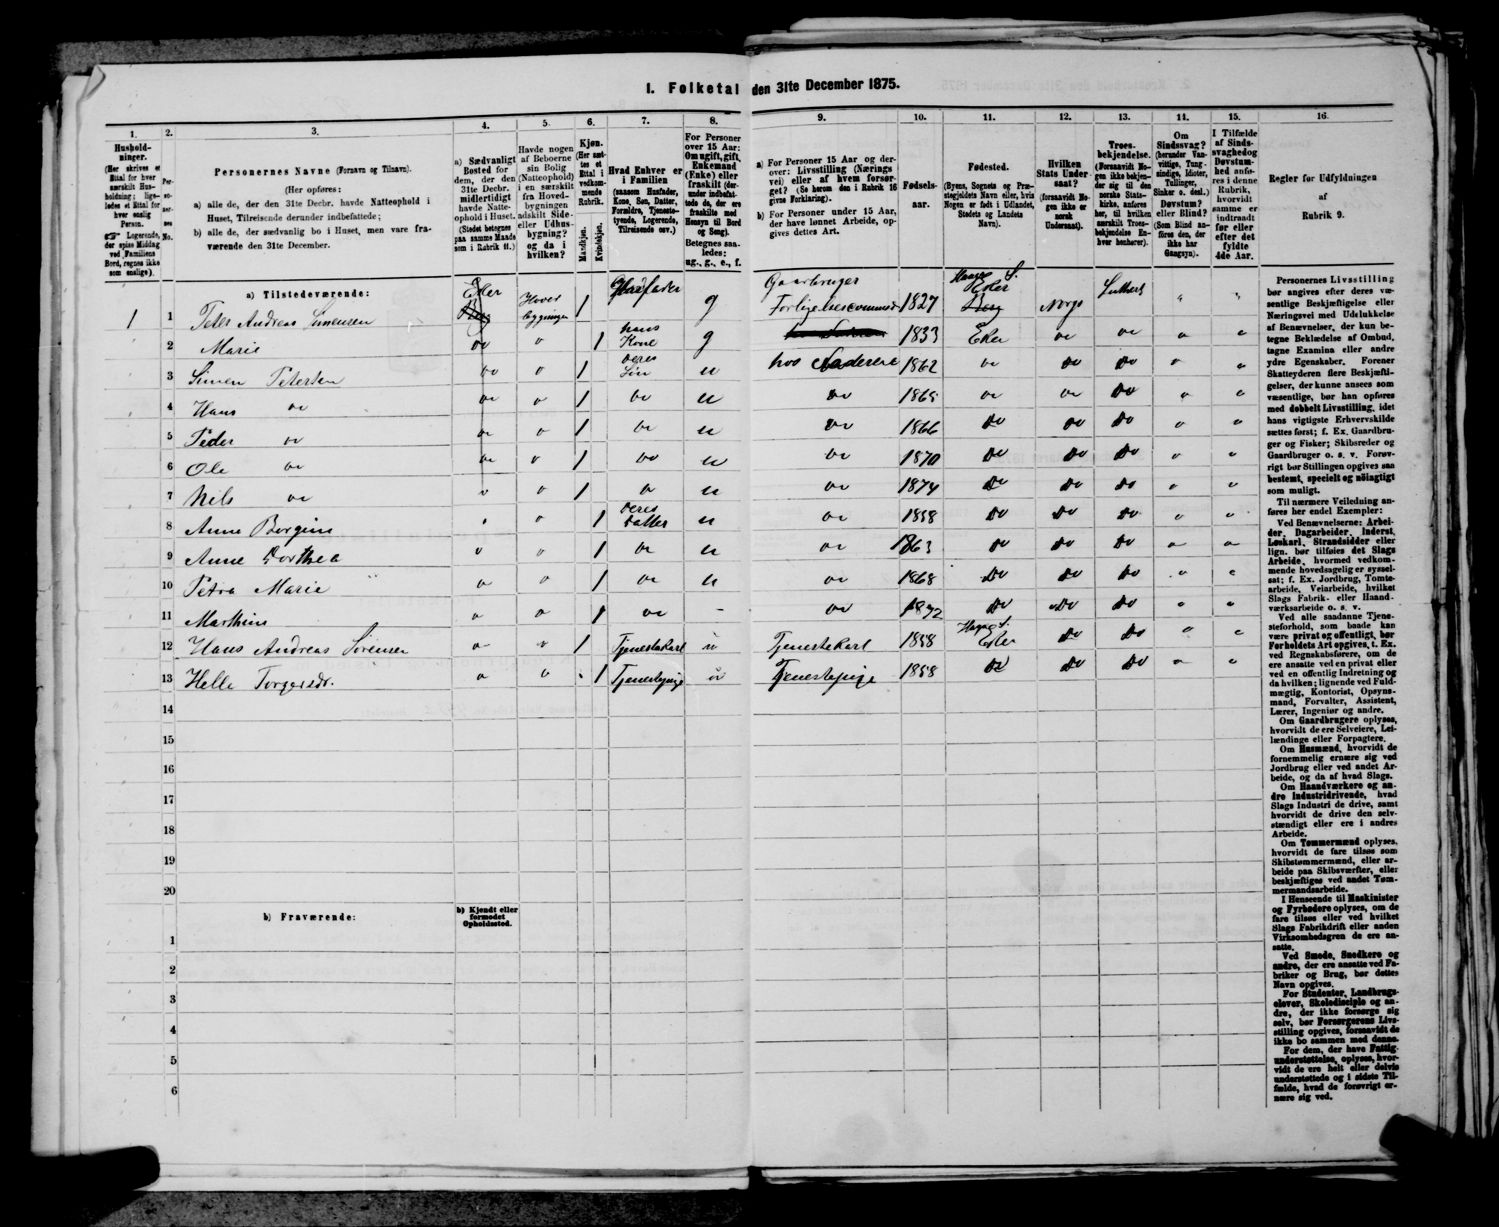 I. Folketal den 31te December 1875.
1. 2. 3. 4. 5. 6. 7. 8. 9. 10. 11. 12. 13. 14. 15. 16.
Hushold-
ninger.
(Her skrives et
Ettal for hver
særskilt Hus-
holdning; lige-
ledes et Ettal for
hver enslig
Person.
Logerende,
der spise Middag
ved Familiens
Bord, regnes ikke
som enslige).
Personernes Navne (Fornavn og Tilnavn).
(Her opføres:
a) alle de, der den 31te Decbr. havde Natteophold i
Huset, Tilreisende derunder indbefattede;
b) alle de, der sædvanlig bo i Huset, men vare fra-
værende den 31te December.
a) Sædvanligt
Bosted for
dem, der den
31te Decbr.
midlertidigt
havde Natte-
ophold i Huset.
(Stedet betegnes
paa samme Maade
som i Rubrik 11.)
Havde nogen
af Beboerne
sin Bolig
(Natteophold)
i en særskilt
fra Hoved-
bygningen
adskilt Side-
eller Udhus-
bygning?
og da i
hvilken?
Kjøn.
(Her sæt-
tes et
Ettal i
vedkom-
mende
Rubrik.
Mandkjøn.
Kvindekjøn.
Hvad Enhver er
i Familien
(saasom Husfader,
Kone, Søn, Datter,
Forældre, Tjeneste-
tyende, Logerende,
Tilreisende osv.)
For Personer
over 15 Aar:
Om ugift, gift,
Enkemand
(Enke) eller
fraskilt (der-
under indbefat-
tede de, der ere
fraskilte med
Hensyn til Bord
og Seng).
Betegnes saa-
ledes:
ug., g., e., f.
a) For Personer 15 Aar og der-
over: Livsstilling (Nærings
vei) eller af hvem forsør-
get? (Se herom den i Rubrik 16
givne Forklaring).
b) For Personer under 15 Aar,
der have lønnet Arbeide, op-
gives dettes Art.
Fødsels-
aar.
Fødested.
(Byens, Sognets og Præ-
stegjeldets Navn eller, hvis
Nogen er født i Udlandet,
Stedets og Landets
Navn).
Hvilken
Stats Under
saat?
(forsaavidt No-
gen ikke er
norsk
Undersaat).
Troes-
bekjendelse.
(Forsaavidt No-
gen ikke bekjen-
der sig til den
norske Stats-
kirke, anføres
her, til hvilken
særskilt Troes-
bekjendelse En-
hver henhører).
Om
Sindssvag?
(herunder Van-
vittige, Tung-
sindige, Idioter,
Tullinger,
Sinker o. desl.)
Døvstum?
eller Blind?
(Som Blind an-
føres den, der
ikke har
Gangsyn).
I Tilfælde
af Sinds-
svaghed og
Døvstum-
hed anfø-
res i denne
Rubrik,
hvorvidt
samme er
indtraadt
før eller
efter det
fyldte
4de Aar.
Regler for Udfyldningen
af
Rubrik 9.
a) Tilstedeværende:
1 1 Peter Andreas Simensen Eker Hoved bygningen 1 Huusfader g Gaardbruger Forligelsescommis 1827 Haugs S. Eker Norge Luthersk " "
2 Marie do o 1 hans Kone g 1833 Eker do do " "
3 Simen Petersen do o 1 deres Søn u hos Faderen 1862 do do do " "
4 Hans do do o 1 do u do 1865 do do do " "
5 Peder do do o 1 do u do 1866 do do do " "
6 Ole do do o 1 do u do 1870 do do do " "
7 Nils do " o 1 do u do 1874 do do do " "
8 Anne Borgine " o 1 deres Datter u do 1858 do do do " "
9 Anne Dorthea " o 1 do u do 1863 do do do " "
10 Petra Marie " o 1 do u do 1868 do do do " "
11 Mathine " o 1 do - do 1872 do do do " "
12 Hans Andreas Sørensen " o 1 Tjenestekarl u Tjenestekarl 1858 Haugs S. Eker do do " "
13 Helle Torgersdr. " o 1 Tjenestepige u Tjenestepige 1858 do do do " "
14
15
16
17
18
19
20
b) Fraværende:
b) Kjendt eller
formodet
Opholdssted.
1
2
3
4
5
6
Personernes Livsstilling
bør angives efter deres væ-
sentlige Beskjæftigelse eller
Næringsvei med Udelukkelse
af Benævnelser, der kun be-
tegne Beklædelse af Ombud,
tagne Examina eller andre
ydre Egenskaber. Forener
Skatteyderen flere Beskjæfti-
gelser, der kunne ansees som
væsentlige, bør han opføres
med dobbelt Livsstilling, idet
hans vigtigste Erhvervskilde
sættes først; f. Ex. Gaardbru-
ger og Fisker; Skibsreder og
Gaardbruger o. s. v. Forøv-
rigt bør Stillingen opgives saa
bestemt, specielt og nöiagtigt
som muligt.
Til nærmere Veiledning an-
føres her endel Exempler:
Ved Benævnelserne: Arbei-
der, Dagarbeider, Inderst,
Løskarl, Strandsidder eller
lign. bør tilføies det Slags
Arbeide, hvormed vedkom-
mende hovedsagelig er syssel-
sat; f. Ex. Jordbrug, Tomte-
arbeide, Veiarbeide, hvilket
Slags Fabrik- eller Haand-
værksarbeide o. s. v.
Ved alle saadanne Tjene-
steforhold, som baade kan
være privat og offentligt, bør
Forholdets Art opgives, f. Ex.
ved Regnskabsførere, om de
ere ansatte ved en privat eller
ved en offentlig Indretning og
da hvilken; lignende ved Fuld-
mægtig, Kontorist, Opsyns-
mand, Forvalter, Assistent,
Lærer, Ingeniør og andre.
Om Gaardbrugere oplyses,
hvorvidt de ere Selveiere, Lei-
lændinge eller Forpagtere.
Om Husmænd, hvorvidt de
fornemmelig ernære sig ved
Jordbrug eller ved andet Ar-
beide, og da af hvad Slags.
Om Haandværkere og an-
dre Industridrivende, hvad
Slags Industri de drive, samt
hvorvidt de drive den selv-
stændigt eller ere i andres
Arbeide.
Om Tømmermænd oplyses,
hvorvidt de fare tilsøs som
Skibstømmermænd, eller ar-
beide paa Skibsværfter, eller
beskjæftiges ved andet Tøm-
mermandsarbeide.
I Henseende til Maskinister
og Fyrbødere oplyses, om de
fare tilsøs eller ved hvilket
Slags Fabrikdrift eller anden
Virksomhedsgren de ere an-
satte.
Ved Smede, Snedkere og
andre, der ere ansatte ved Fa-
briker og Brug, bør dettes
Navn opgives.
For Studenter, Landbrugs-
elever, Skoledisciple og an-
dre, der ikke forsørge sig
selv, bør Forsørgerens Livs-
stilling opgives, forsaavidt de
ikke bo sammen med denne.
For dem, der have Fattig-
understøttelse, oplyses, hvor-
vidt de ere helt eller delvis
understøttede og i sidste Til-
fælde, hvad de forøvrigt er-
nære sig ved.